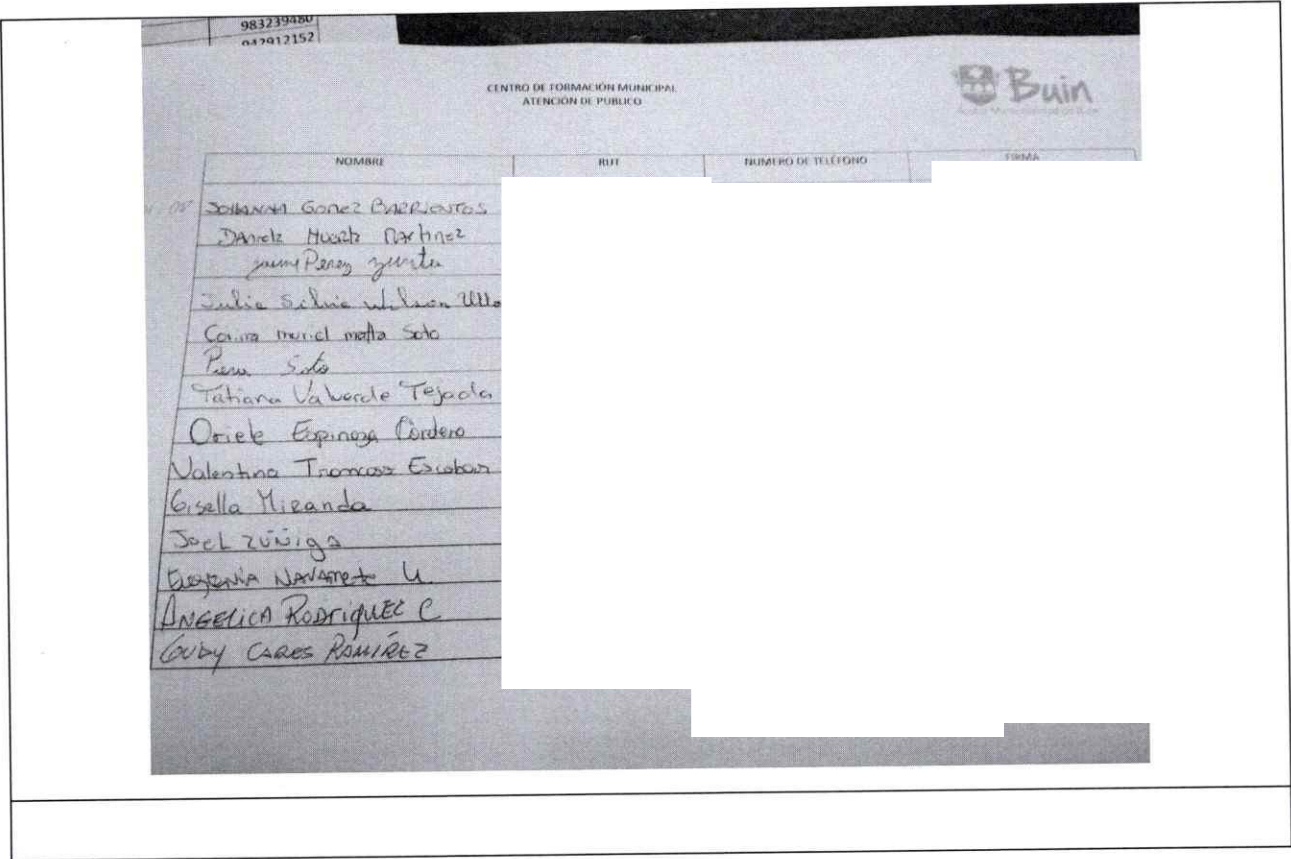 983239480
942912152
CENTRO DE FORMACIÓN MUNICIPAL
ATENCIÓN DE PUBLICO
Buin
NOMBRE RUT NUMERO DE TELÉFONO FIRMA
JOHANNA GOMEZ BARRIENTOS
DANIELA Huerta Martinez
Jaime Perez Zurita
Julia Silvia Wilson Ullo
Corina muriel matta Soto
Piera Soto
Tatiana Valverde Tejada
Oriele Espinoza Cordero
Valentina Troncoso Escobar
Gisella Miranda
JoeL ZÚÑiga
EUGENIA NAVArrete U.
ANGELICA RODriguEZ C
CARES RAMÍREZ